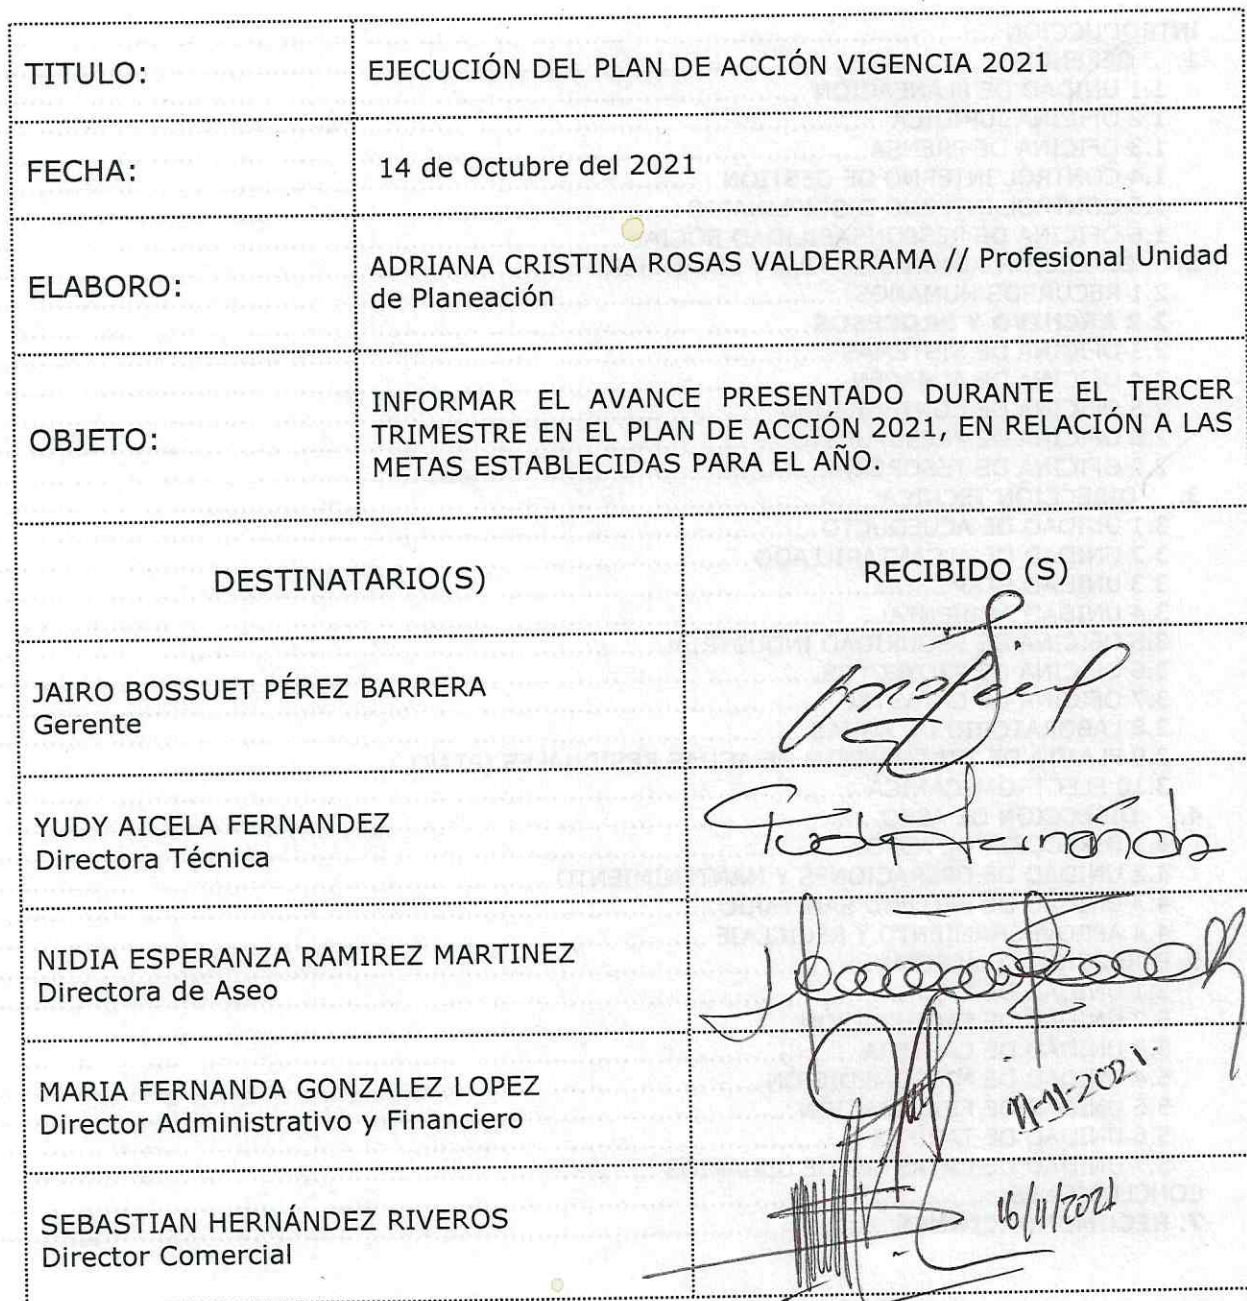 TITULO:
EJECUCIÓN DEL PLAN DE ACCIÓN VIGENCIA 2021
FECHA:
14 de Octubre del 2021
ELABORO:
ADRIANA CRISTINA ROSAS VALDERRAMA // Profesional Unidad
de Planeación
OBJETO:
INFORMAR EL AVANCE PRESENTADO DURANTE EL TERCER
TRIMESTRE EN EL PLAN DE ACCIÓN 2021, EN RELACIÓN A LAS
METAS ESTABLECIDAS PARA EL AÑO.
DESTINATARIO(S)
RECIBIDO (S)
JAIRO BOSSUET PÉREZ BARRERA
Gerente
YUDY AICELA FERNANDEZ
Directora Técnica
NIDIA ESPERANZA RAMIREZ MARTINEZ
Directora de Aseo
MARIA FERNANDA GONZALEZ LOPEZ
Director Administrativo y Financiero
11-11-2021
SEBASTIAN HERNÁNDEZ RIVEROS
Director Comercial
16/11/2021